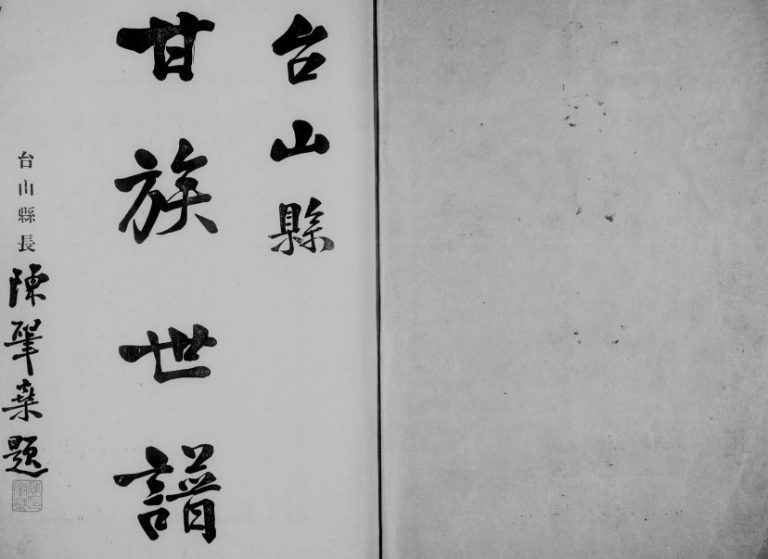 台山縣
甘族世譜
台山縣長 陳肇燊題